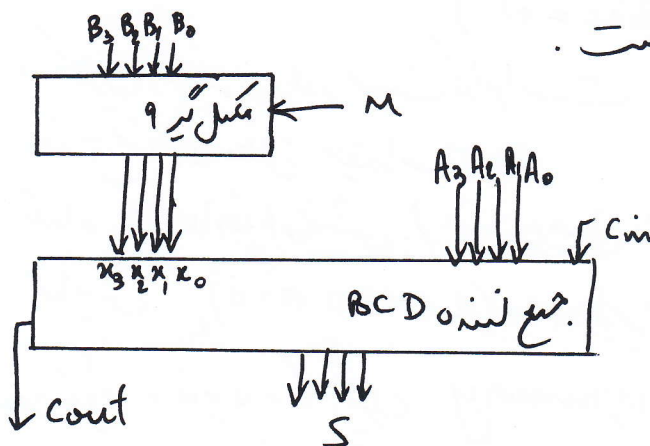 B3 B2 B1 B0
ست .
مکمل گیر 9
M
A3 A2 A1 A0
Cin
x3 x2 x1 x0
جمع کننده BCD
Cout
S